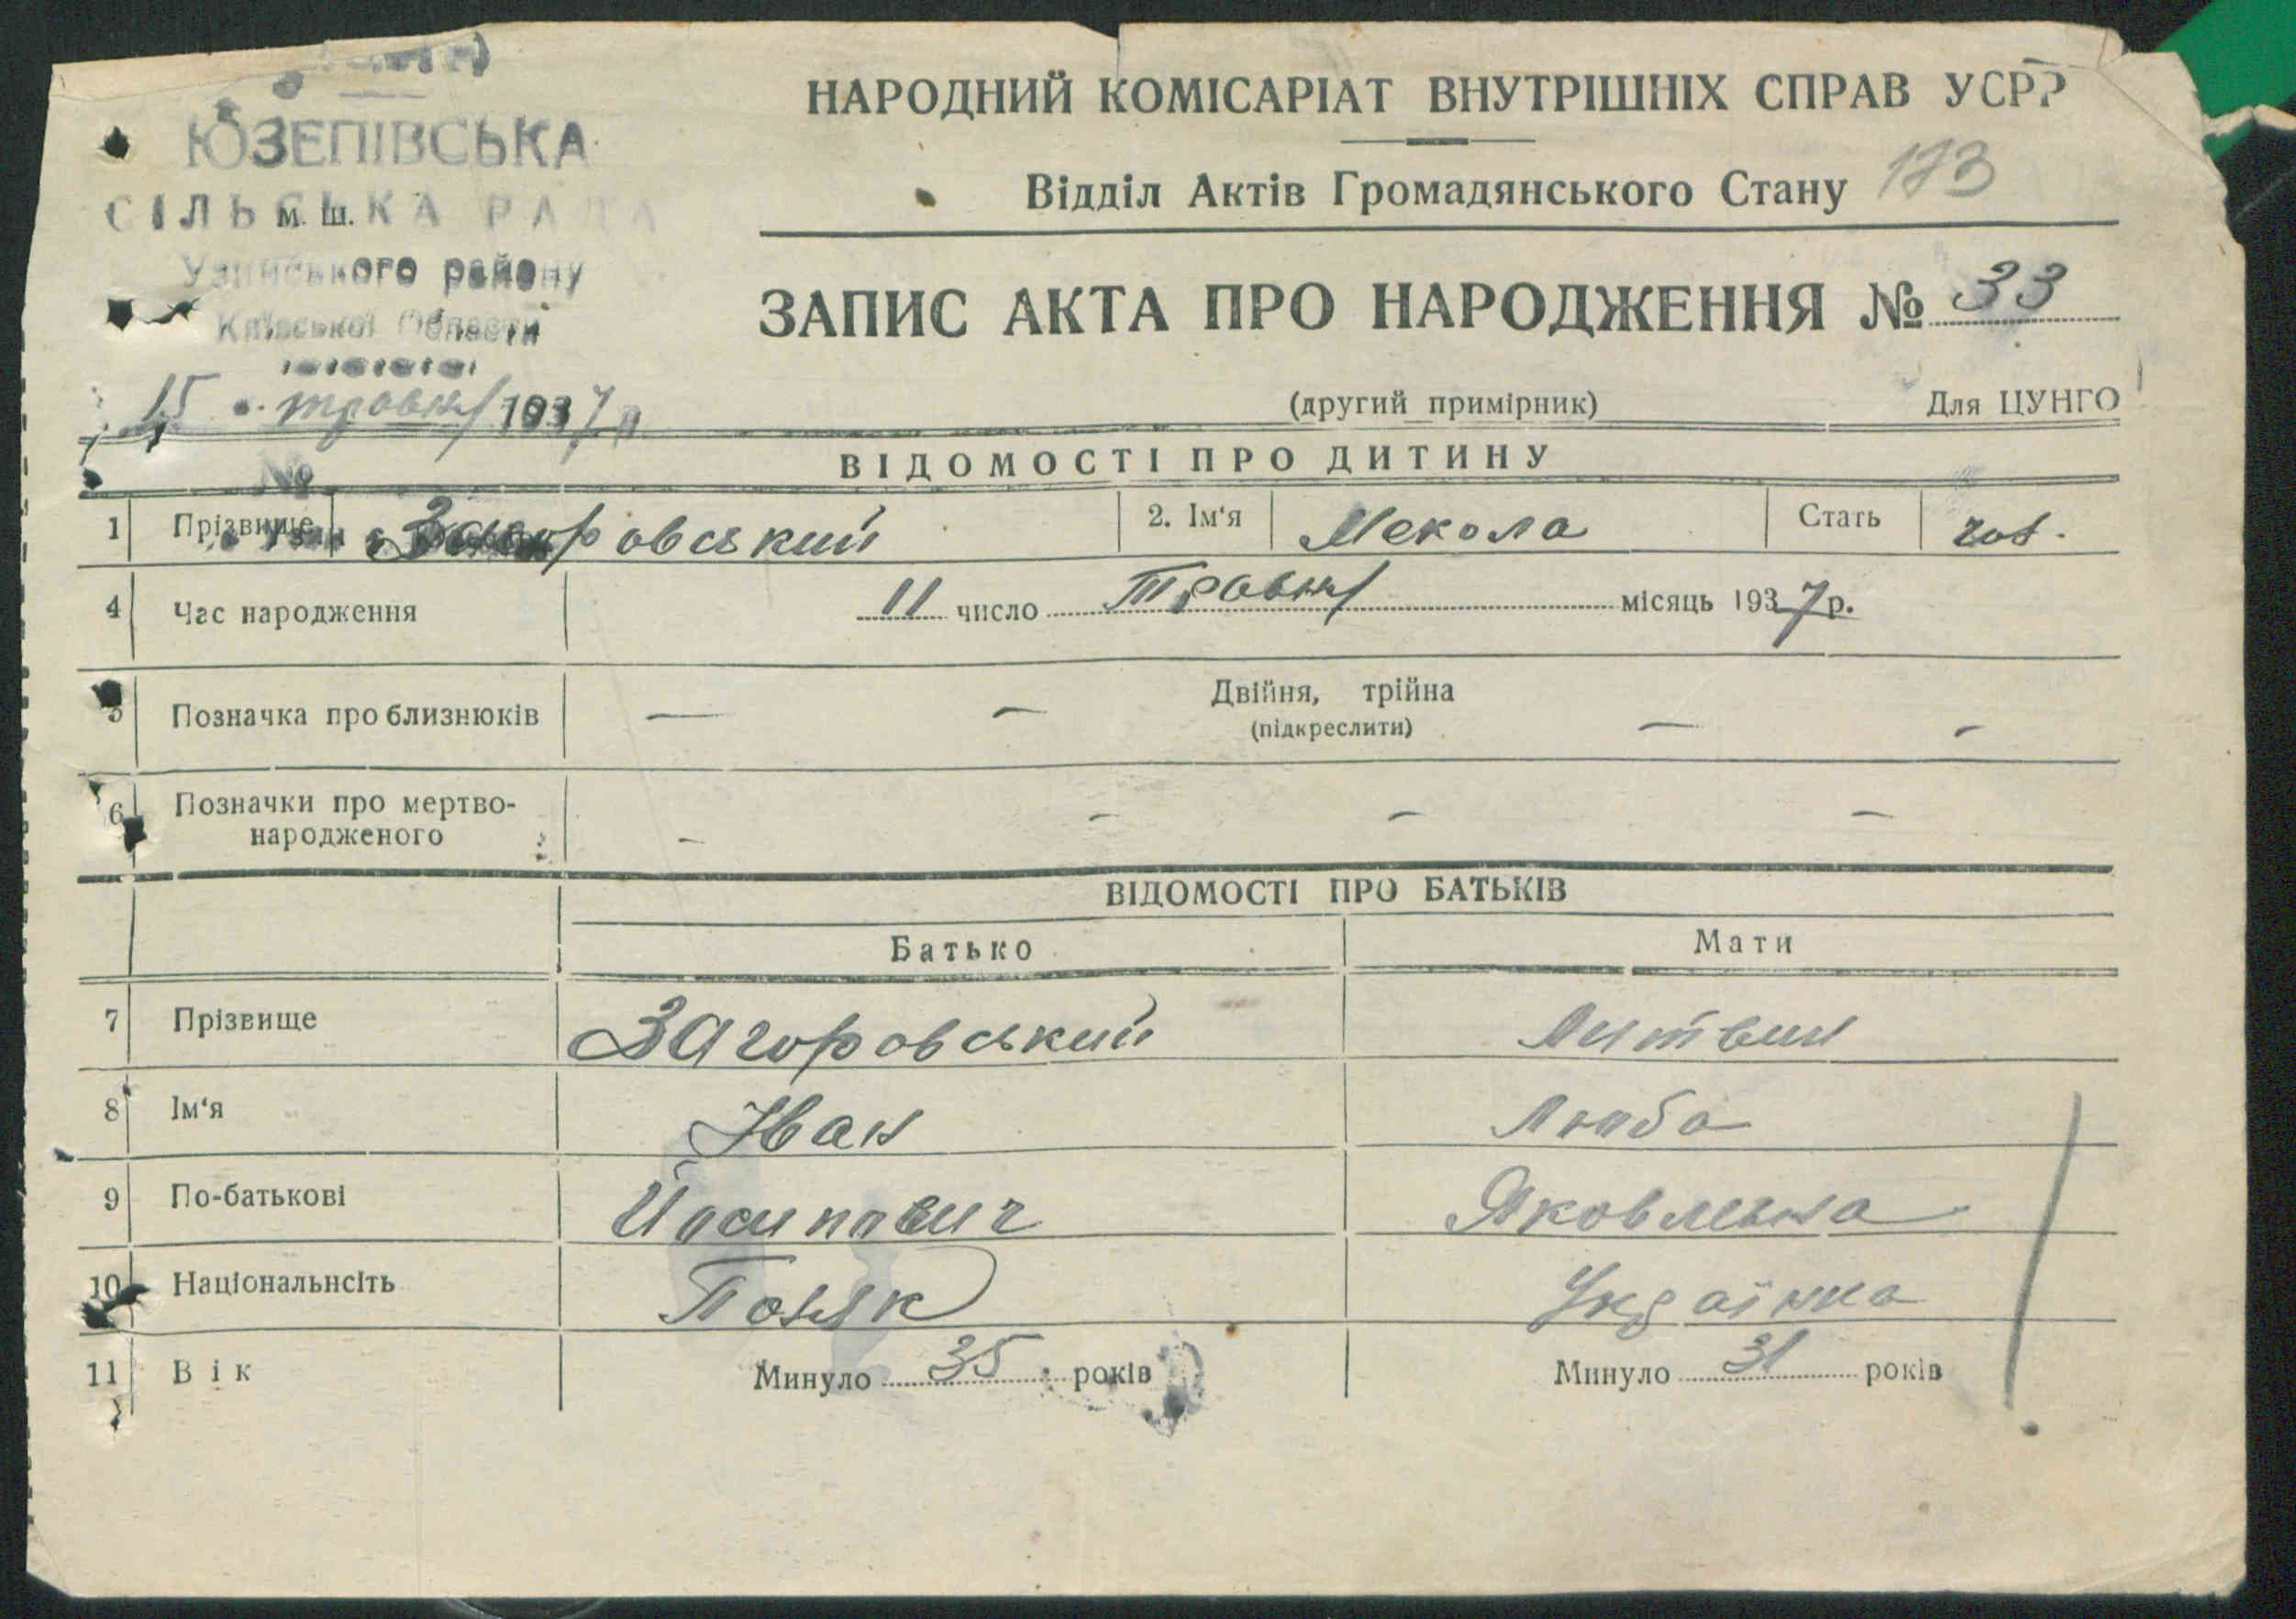 ЮЗЕПІВСЬКА
СІЛЬСЬКА РАДА
м. ш.
Узинського району
Київської Области
15 травня 1937 р
№
НАРОДНИЙ КОМІСАРІАТ ВНУТРІШНІХ СПРАВ УСРР
Відділ Актів Громадянського Стану 173
ЗАПИС АКТА ПРО НАРОДЖЕННЯ № 33
(другий примірник) Для ЦУНГО
ВІДОМОСТІ ПРО ДИТИНУ
1 Прізвище Загоровський 2. Ім'я Мекола Стать чол.
4 Час народження 11 число Травня місяць 1937 р.
5 Позначка про близнюків — – Двійня, трійна — –
(підкреслити)
6 Позначки про мертво- – – – –
народженого
ВІДОМОСТІ ПРО БАТЬКІВ
Батько Мати
7 Прізвище Загоровський Литвин
8 Ім'я Іван Люба
9 По-батькові Йосипович Яковльна
10 Національнсіть Поляк Українка
11 Вік Минуло 35 років Минуло 31 років